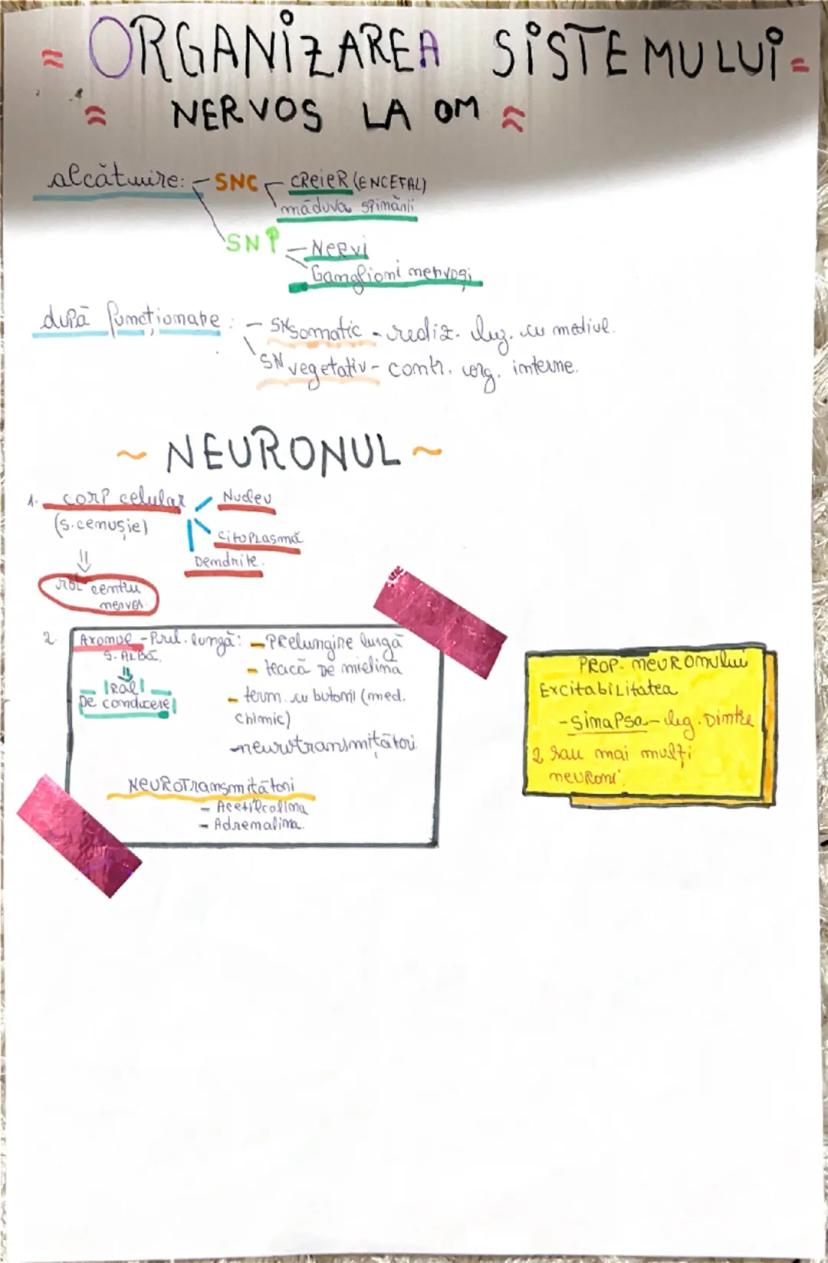 ORGANIZAREA SISTEMULUI
NERVOS LA OM
alcătuire: - SNC - CREIER (ENCEFAL)
măduva spinării
SNP - Nervi
Ganglioni nervoși
după funcționare: - SN somatic - realiz. leg. cu mediul.
SN vegetativ - contr. org. interne.
~ NEURONUL ~
1. corp celular
Nucleu
(s. cenușie)
citoplasmă
Dendrite.
rol centru
nervos
2. Axonul - Prel. lungă: - Prelungire lungă
S. ALBĂ
- teacă De mielină
Rol
De conducere
- term. cu butoni (med.
chimic)
- neurotransmițători
NEUROTransmitători
- Acetilcolina
- Adrenalina.
PROP. neuronului
Excitabilitatea
- sinapsa - leg. Dintre
2 sau mai mulți
neuroni.